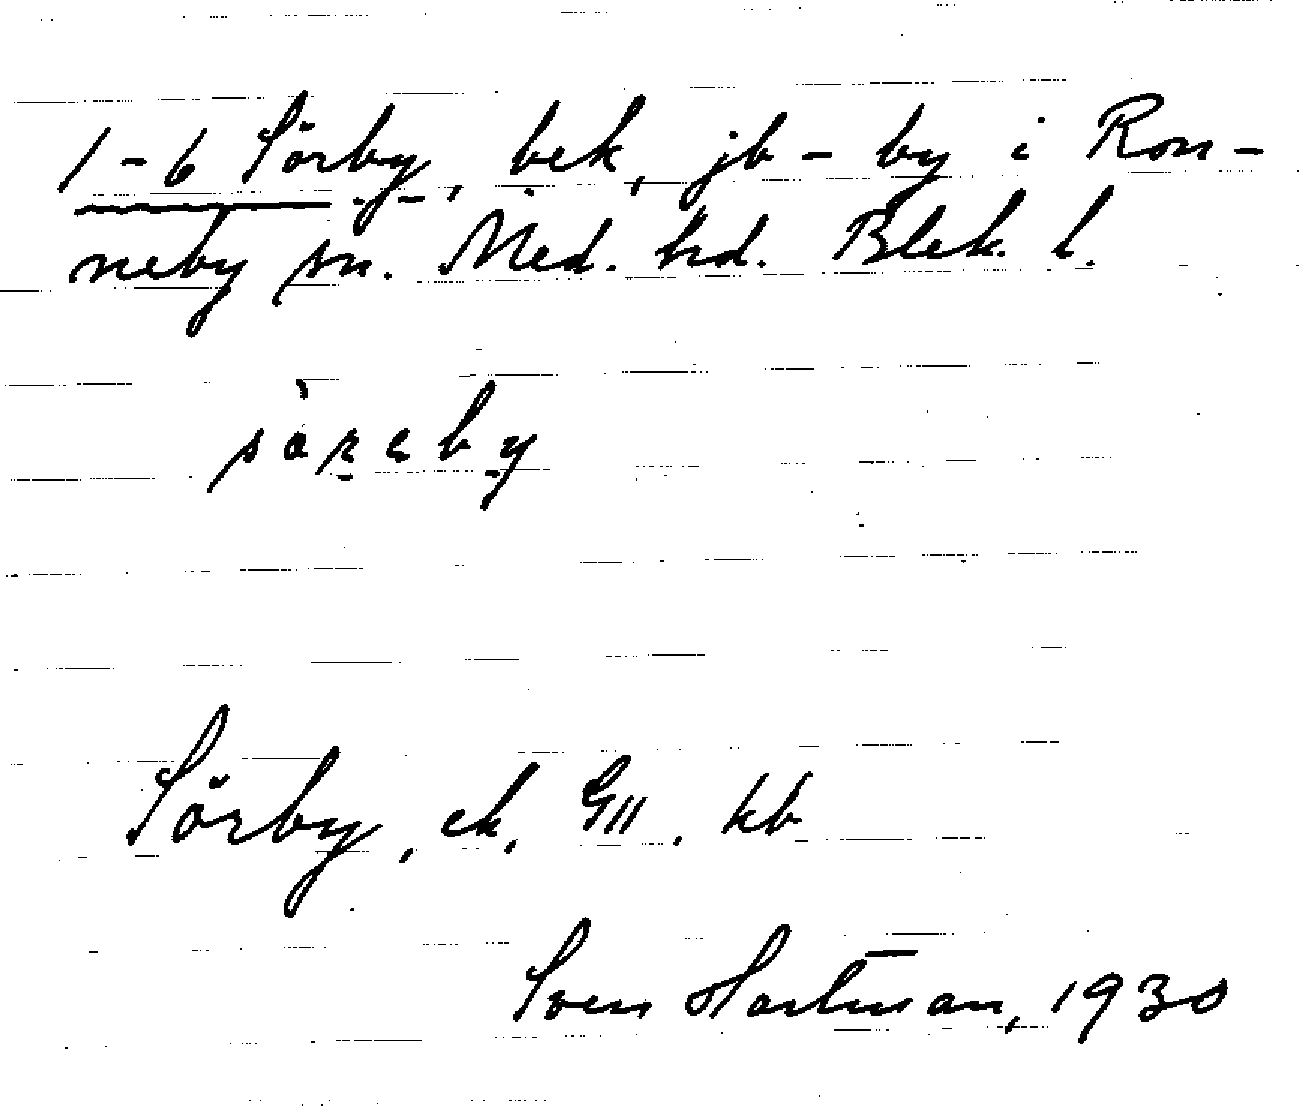 1-6 Sörby, bek, jb-by i Ron-
neby sn. Med. hd. Blek. l.
Sörby, ek, GII. kb
Sven Hartman, 1930